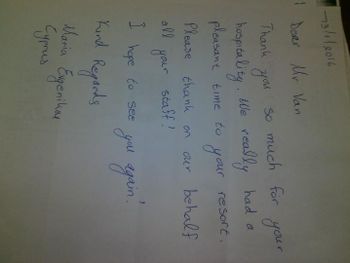 13/1/2016
Dear Mr Van
Thank you so much for your
hospitality. We really had a
pleasant time to your resort.
Please thank on our behalf
all your staff!
I hope to see you again!
Kind Regards
Maria Evgeniou
Cyprus